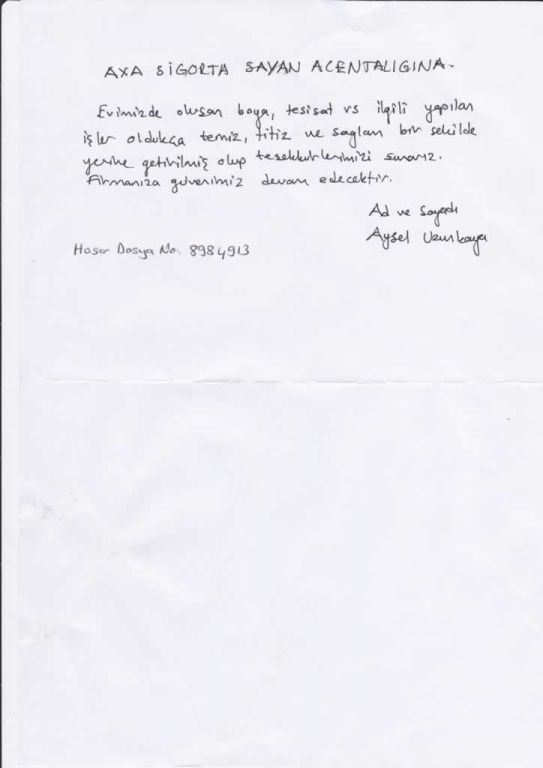 AXA SİGORTA SAYAN ACENTALIGINA.
Evimizde olusan boya, tesisat vs ilgili yapılan
işler oldukça temiz, titiz ve saglam bir sekilde
yerine getirilmiş olup tesekkürlerimizi sunarız.
Firmanıza güvenimiz devam edecektir.
Ad ve Soyadı
Aysel Uzunkaya
Hasar Dosya No: 8984913